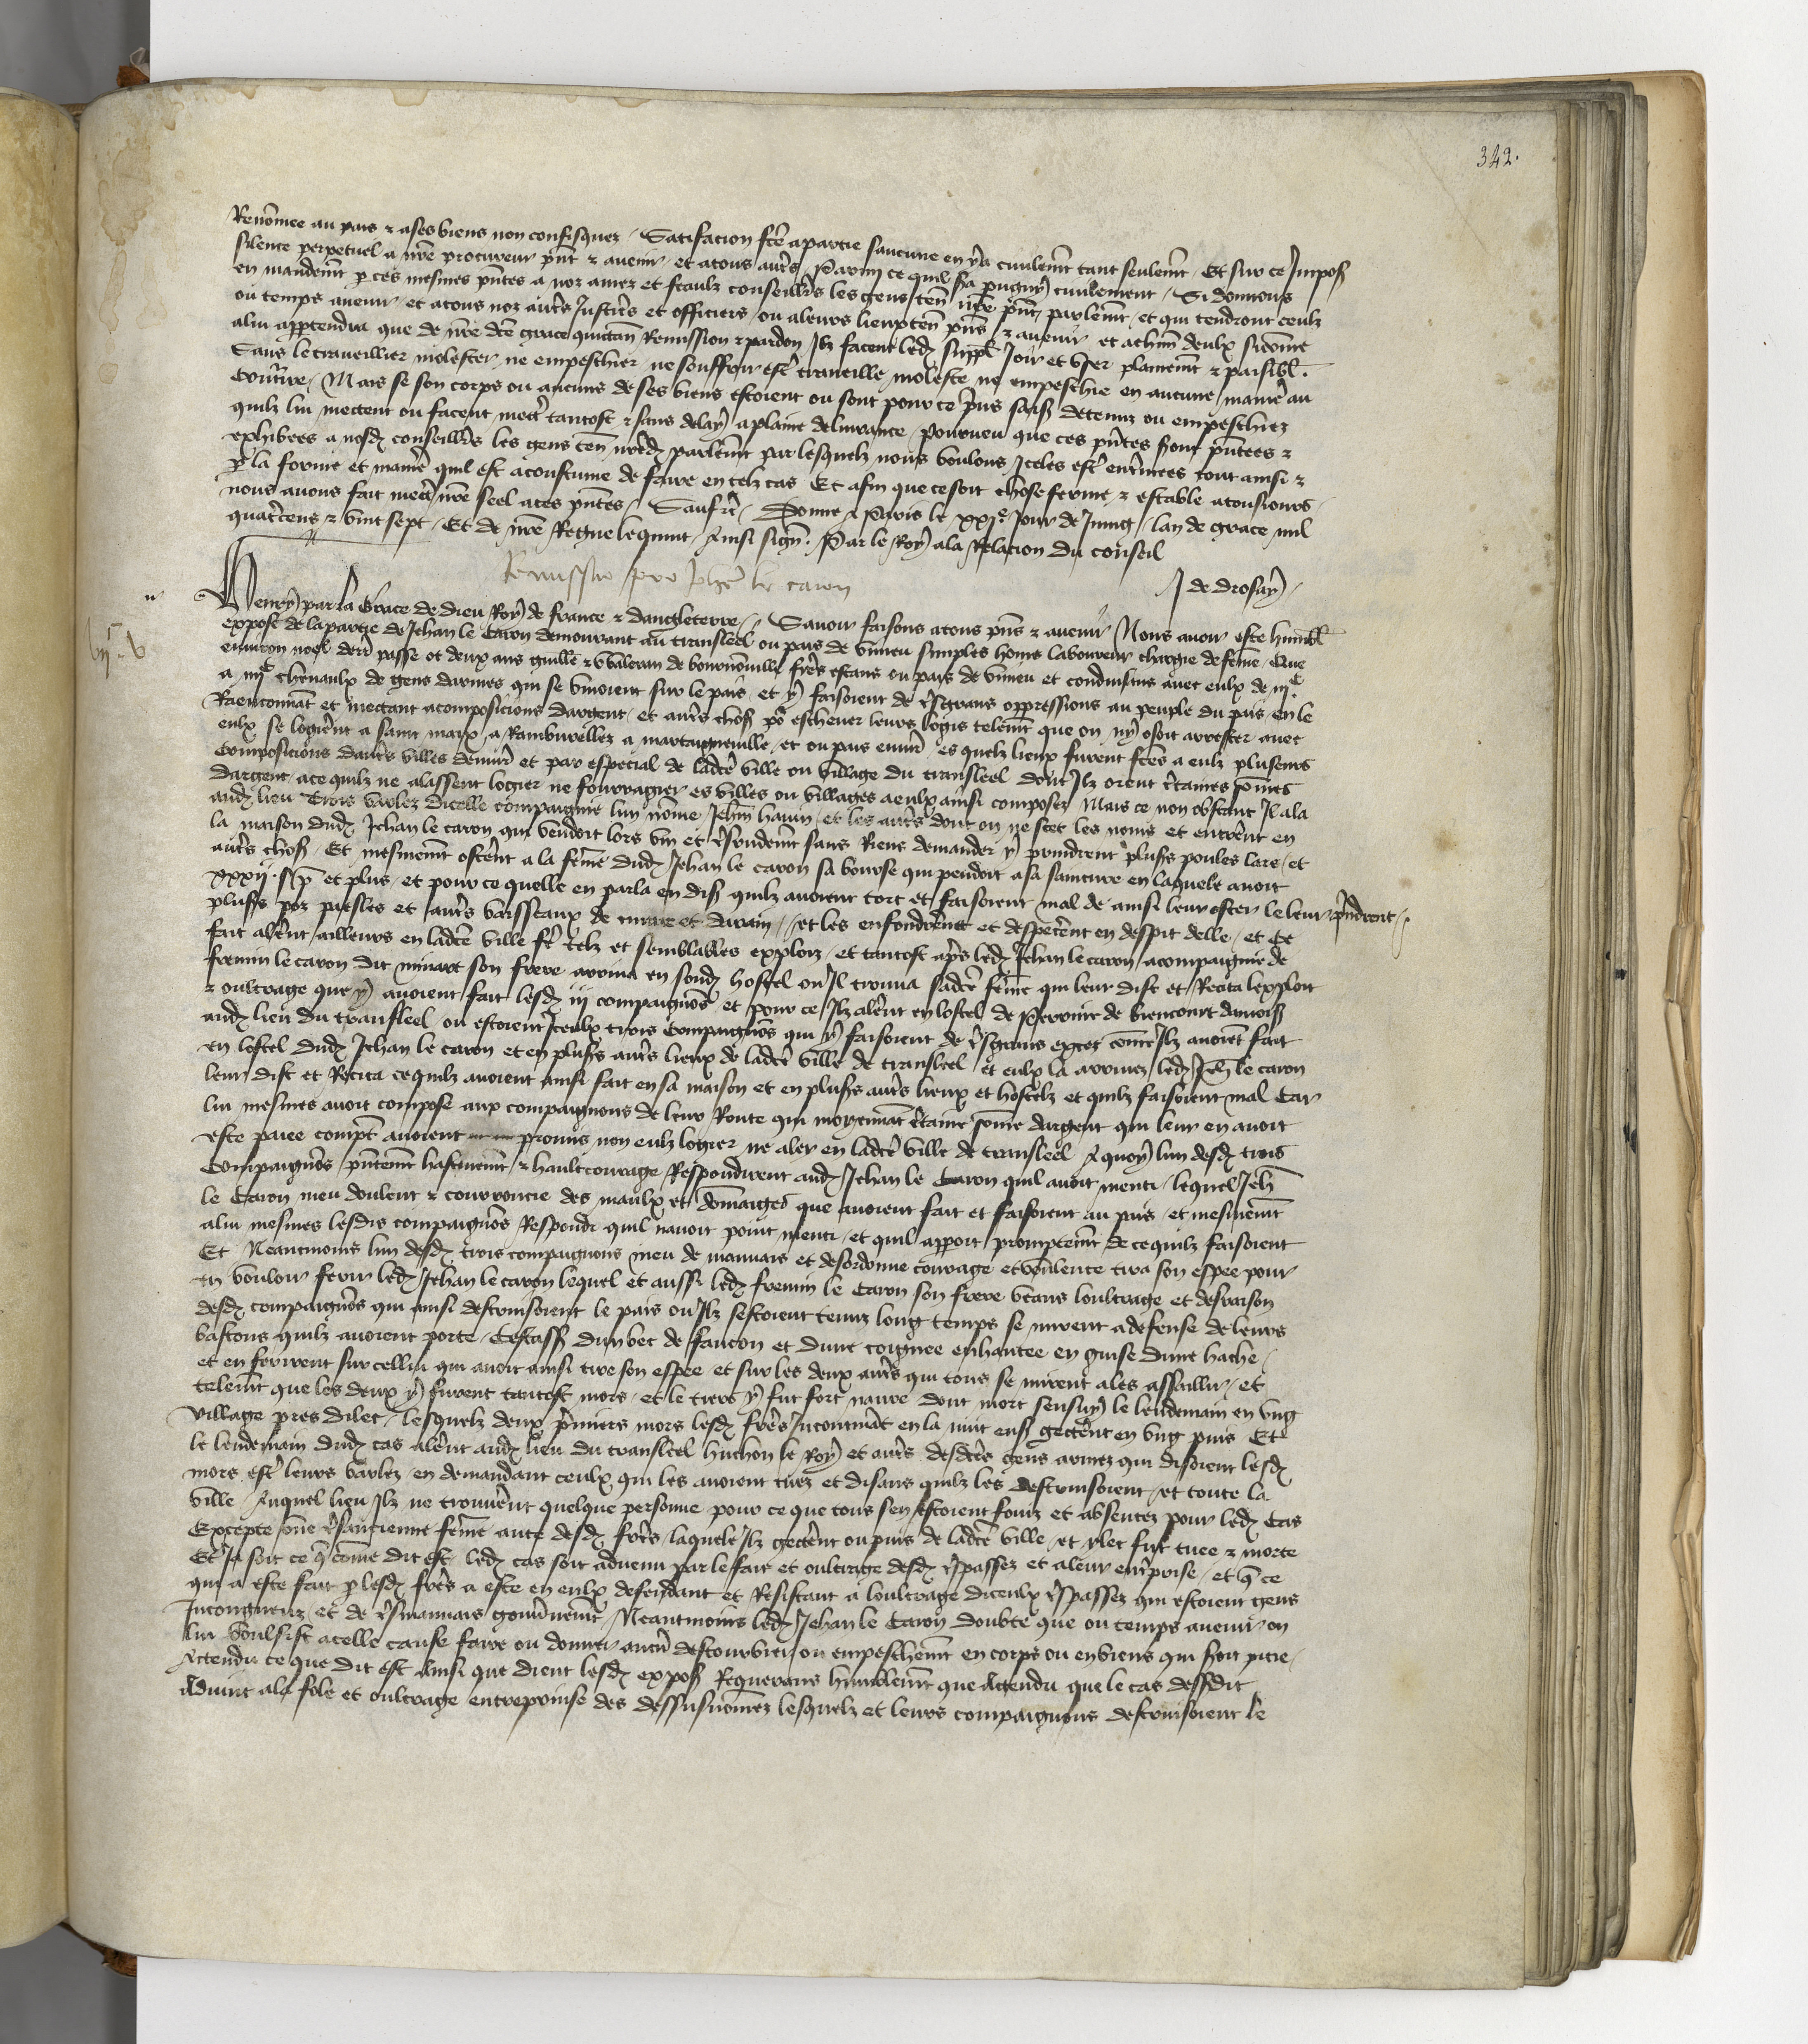 342.
Renōmee au pais & a ses biens non confisquez / Satisfacion fcē a partie saucune en ya civilemt tant seulemt / Et sur ce Imposs
silence perpetuel a nrē procureur pnt & avenir / et a tous autrs Parmi ce quil sa pugny civilement / Si donnons
en mandemt p ces mesmes pntes a noz amez et feaulx conseillrs les gens ten nrē pnt parlemt / et qui tendront ceulx
ou temps avenir / et a tous noz autrs Justicrs et officiers / ou a leurs lieuxten pns & avenir et a chun deulx si cōme
a lui appartendra que de nrē dcē grace quictan Remission & pardon Ilz facent led suppl Joir et user plainemt & paisibl.
Sans le traveillier molester / ne empeschier / ne souffrir estr traveille moleste ne empeschie en aucune manie au
contrre / Mais se son corps ou aucuns de ses biens estoient ou sont pour ce prins saisis detenuz ou empeschiez
quilz lui mectent ou facent mectr tantost & sans delay a plaine delivrance / pourveu que ces pntes sont pntees &
exhibees a nosd conseillrs les gens ten nrēd parlemt par lesquelz nous voulons Iceles estr enterinees tout ainsi &
p la forme et manie quil est acoustume de faire en telz cas Et afin que ce soit chose ferme & estable a tousiours
nous avons fait mectr nrē seel a ces pntes / Sauf &c / Donne a Paris le xxje Jour de Juing / lan de grace mil
quatrcens & vint sept / Et de nrē Regne le quint / Ainsi sign. Par le Roy a la Relacion du conseil
J de Drosay /
Remissio pro Johe le caron
Henry par la Grace de dieu Roy de france & dangleterre / Savoir faisons a tous pns & avenir Nous avoir este humbl
expose de la partie de Jehan le Caron demourant au transleel ou pais de vimeu simples homs laboureur chargie de feme / Que
environ noel derr passe ot deux ans guille & waleran de bournonville frers estans ou pais de vimeu et conduisans avec eulx de iijc
a iiijc chevaulx de gens darmes qui se vivoient sur le pais / et y faisoient de trsgrans oppressions au peuple du pais / en le
Raenconnant et mectant a composicions dargent / et autrs chos po eschever leurs logis telemt que on ny osoit arrester avec
eulx se logierent a saint marx / a Ramburellez a martaigneville / et ou pais envir es quelz lieux furent fcēs a eulx pluseurs
Composicions dautrs villes denvir et par especial de ladce ville ou village du transleel dont Ilz orent crtaines sōmes
dargent / a ce quilz ne alassent logier ne fourragier es villes ou villages a eulx ainsi composez Mais ce non obstant Il ala
aud lieu Trois varlez dicelle compaignie lun nōme Jehan havin / et les autrs dont on ne scet les noms et entrent en
la maison dud Jehan le caron qui vendoit lors vin et trsrudemt sans Riens demander y prindrent plusrs poules lars / et
autrs chos / Et mesmemt osterent a la feme dud Jehan le caron sa bourse qui pendoit a sa sainture en laquele avoit
xxxij s p et plus / et pour ce quelle en parla en dis quilz avoient tort et faisoient mal de ainsi leur oster le leur / prindrent /
plusrs poz paesles et autrs vaisseaux de cuivre et darain / et les enfondrerent et despecerent en despit delle / et Ce
fait alerent ailleurs en ladce ville fe telz et semblables explois / et tantost aprs led Jehan le caron acompaignie de
fremin le caron dit minart son frere arriva en sond hostel ou Il trouva sadce feme qui leur dist et Recita lexploit
& oultrage que y avoient fait lesd iij compaignons et pour ce Ilz alerent en lostel de Perrinet de biencourt
aud lieu du transleel / ou estoient Iceulx trois compaignons qui y faisoient de trsgrans exces cōme Ilz avoient fait
en lostel dud Jehan le caron et en plusrs autrs lieux de ladce ville de transleel et eulx la arrivez led Jeh le caron
leur dist et Recita ce quilz avoient ainsi fait en sa maison et en plusrs autrs lieux et hostelz et quilz faisoient mal Car
lui mesmes avoit compose aux compaignons de leur Route qui moyennant crtaine sōme dargent qui leur en avoit
este paiee compt avoient promis non eulz logier ne aler en ladce ville de transleel A quoy lun desd trois
Compaignons pntemt hastivemt & hault courage Respondirent aud Jehan le Caron quil avoit menti / lequel Jeh
le Caron meu doulent & courroucie des maulx et dōmaiges que avoient fait et faisoient au pais / et mesmemt
a lui mesmes lesdis compaignons Respondi quil navoit point menti / et quil apport promptemt de ce quilz faisoient
Et Neantmoins lun desd trois compaignons meu de mauvais et desordonne courage et voulente tira son espee pour
en vouloir ferir led Jehan le caron lequel et aussi led fremin le Caron son frere veans loultrage et desraison
desd compaignons qui ainsi destruisoient le pais ou Ilz sestoient tenuz long temps se mirent a defense de leurs
bastons quilz avoient porte / Cestass dun bec de faucon et dune coignee enhantee en guise dune hache /
et en ferirent sur cellui qui avoit ainsi tire son espee et sur les deux autrs qui tous se mirent a les assaillir / et
telemt que les deux y furent tantost mors / et le tiers y fut fort navre dont mort sensuy le lendemain en ung
village pres dilec / lesquelz deux prmiers mors lesd frers Incontinent en la nuit ens gecterent en ung puis Et
le lendemain dud cas alerent aud lieu du transleel huchon le Roy et autrs desdces gens armez qui disoient lesd
mors estr leurs varlez / en demandant ceulx qui les avoient tuez et disans quilz les destruisoient / et toute la
ville / Auquel lieu Ilz ne trouverent quelque personne pour ce que tous sen estoient fouiz et absentez pour led Cas
Excepte une trsancienne feme ante desd frers / laquele Ilz gecterent ou puis de ladce ville / et ylec fut tuee & morte
Et Ja soit ce q cōme dit est / led cas soit advenu par le fait et oultrage desd trspassez et a leur entrprise / et q ce
qui a este fait p lesd frers a este en eulx defendant et Resistant a loultrage diceulx trspassez qui estoient gens
Incongneuz / et de trsmauvais gouvrnemt / Neantmoins led Jehan le Caron doubte que ou temps avenir on
lui voulsist a celle cause faire ou donner aucū destourbier / ou empeschemt en corps ou en biens qui soit pitie /
Actendu ce que dit est Ainsi que dient lesd expos Requerans humblemt que Actendu que le cas dessdit
Advint a la fole et oultrage entreprinse des dessusnōmez lesquelz et leurs compaignons destruisoient le